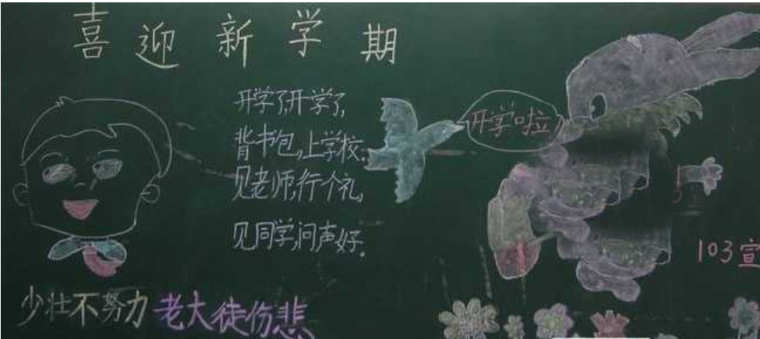 喜迎新学期
开学了,开学了,
背书包,上学校。
见老师,行个礼,
见同学,问声好。
开学啦
103宣
少壮不努力 老大徒伤悲